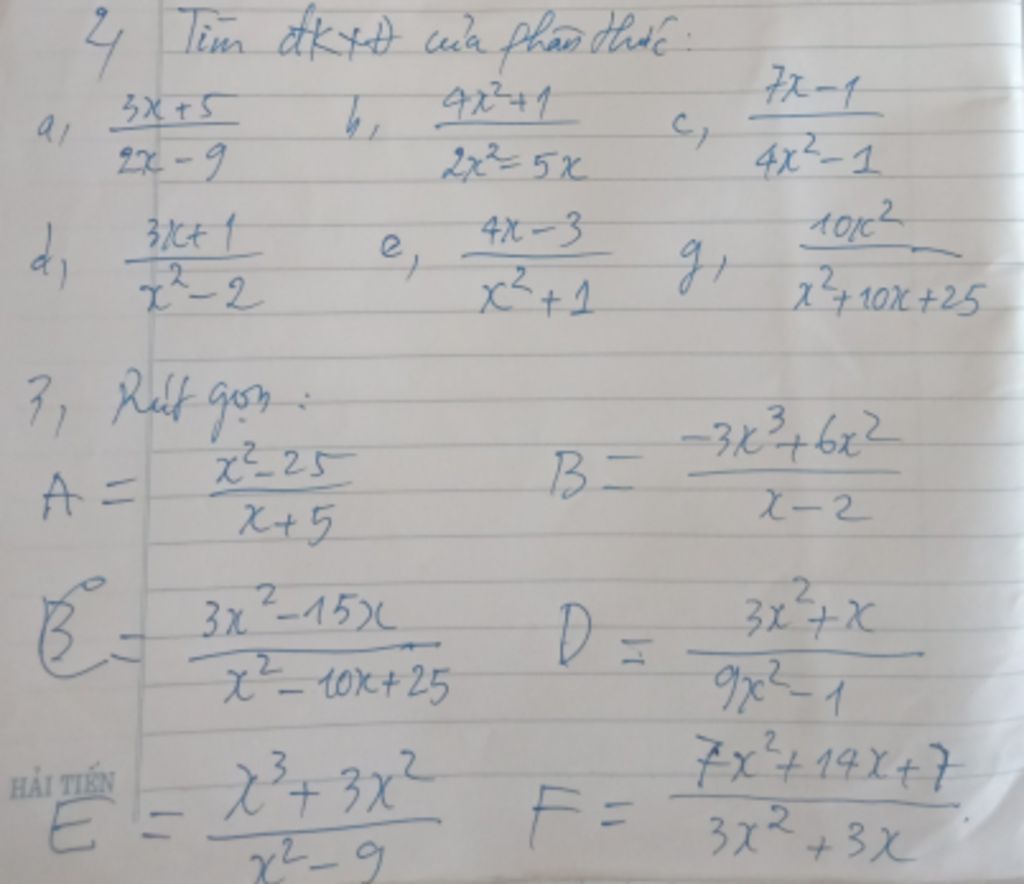 2, Tìm đkxđ của phân thức:
a, (3x+5)/(2x-9) b, (4x²+1)/(2x²=5x) c, (7x-1)/(4x²-1)
d, (3x+1)/(x²-2) e, (4x-3)/(x²+1) g, 10x²/(x²+10x+25)
3, Rút gọn:
A = (x²-25)/(x+5) B = (-3x³+6x²)/(x-2)
C = (3x²-15x)/(x²-10x+25) D = (3x²+x)/(9x²-1)
HẢI TIẾN
E = (x³+3x²)/(x²-9) F = (7x²+14x+7)/(3x²+3x).